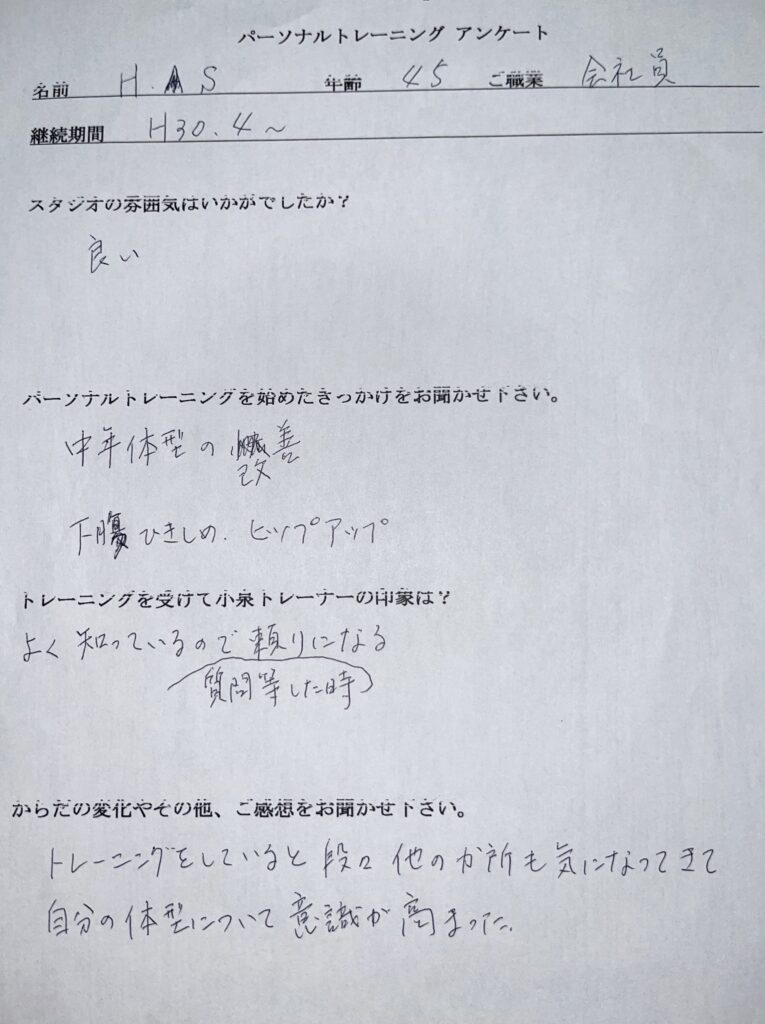 パーソナルトレーニング アンケート
名前 H.A S 年齢 45 ご職業 会社員
継続期間 H30.4～
スタジオの雰囲気はいかがでしたか？
良い
パーソナルトレーニングを始めたきっかけをお聞かせ下さい。
中年体型の改善
下腹ひきしめ．ヒップアップ
トレーニングを受けて小泉トレーナーの印象は？
よく知っているので頼りになる
質問等した時
からだの変化やその他、ご感想をお聞かせ下さい。
トレーニングをしていると段々他のカ所も気になってきて
自分の体型について意識が高まった．